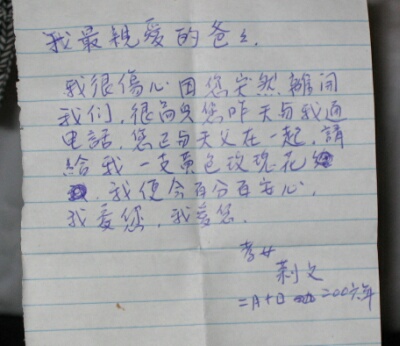 我最親愛的爸々.
我很傷心因您突然離開
我们，很高興您昨天与我通
電話，您已与天父在一起，請
給我一支黃色玫瑰花
，我便会百分百安心，
我爱您，我爱您.
孝女
莉文
二月十日 二00六年